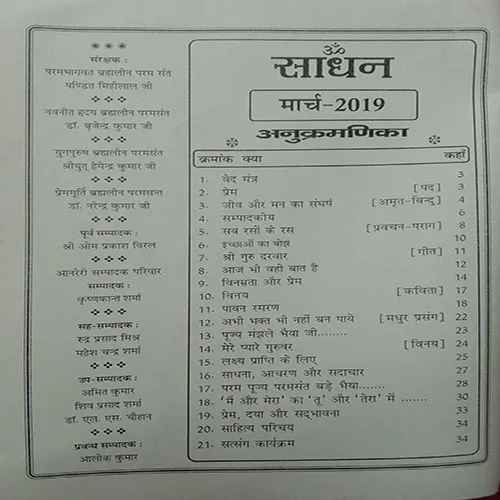 संरक्षक :
परमभागवत ब्रह्मलीन परम संत
पण्डित मिहीलाल जी
नवनीत हृदय ब्रह्मलीन परमसंत
डॉ. बृजेन्द्र कुमार जी
युगपुरुष ब्रह्मलीन परमसंत
श्रीयुत् हेमेन्द्र कुमार जी
प्रेममूर्ति ब्रह्मलीन परमसन्त
डॉ. नरेन्द्र कुमार जी
पूर्व सम्पादक :
श्री ओम प्रकाश विरल
आनरेरी सम्पादक परिवार
सम्पादक :
कृष्णकान्त शर्मा
सह-सम्पादक :
रुद्र प्रसाद मिश्र
महेश चन्द्र शर्मा
उप-सम्पादक :
अमित कुमार
शिव प्रसाद शर्मा
डॉ. एल. एस. चौहान
प्रबन्ध सम्पादक :
आलोक कुमार
ॐ
साधन
मार्च-2019
अनुक्रमणिका
क्रमांक क्या कहाँ
1. वेद मंत्र 3
2. प्रेम [पद] 3
3. जीव और मन का संघर्ष [अमृत-बिन्दु] 4
4. सम्पादकीय 6
5. सब रसों के रस [प्रवचन-पराग] 8
6. इच्छाओं का बोझ 10
7. श्री गुरु दरवार [गीत] 11
8. आज भी वही बात है 12
9. विनम्रता और प्रेम 14
10. विनय [कविता] 17
11. पावन स्मरण 18
12. अभी भक्त भी नहीं बन पाये [मधुर प्रसंग] 22
13. पूज्य मंझले भैया जी........ 23
14. मेरे प्यारे गुरुवर [विनय] 24
15. लक्ष्य प्राप्ति के लिए 25
16. साधना, आचरण और सदाचार 27
17. परम पूज्य परमसंत बड़े भैया....... 28
18. 'मैं और मेरा' का 'तू' और 'तेरा' में ....... 30
19. प्रेम, दया और सद्भावना 33
20. साहित्य परिचय 34
21. सत्संग कार्यक्रम 34